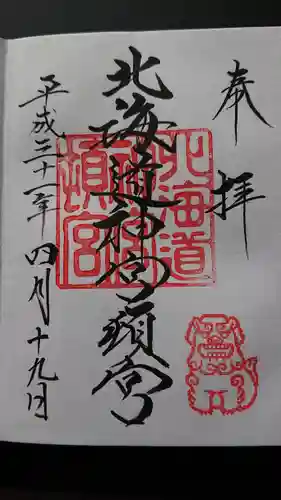 奉拝
北海道神宮頓宮
北海道神宮頓宮
平成三十一年四月十九日